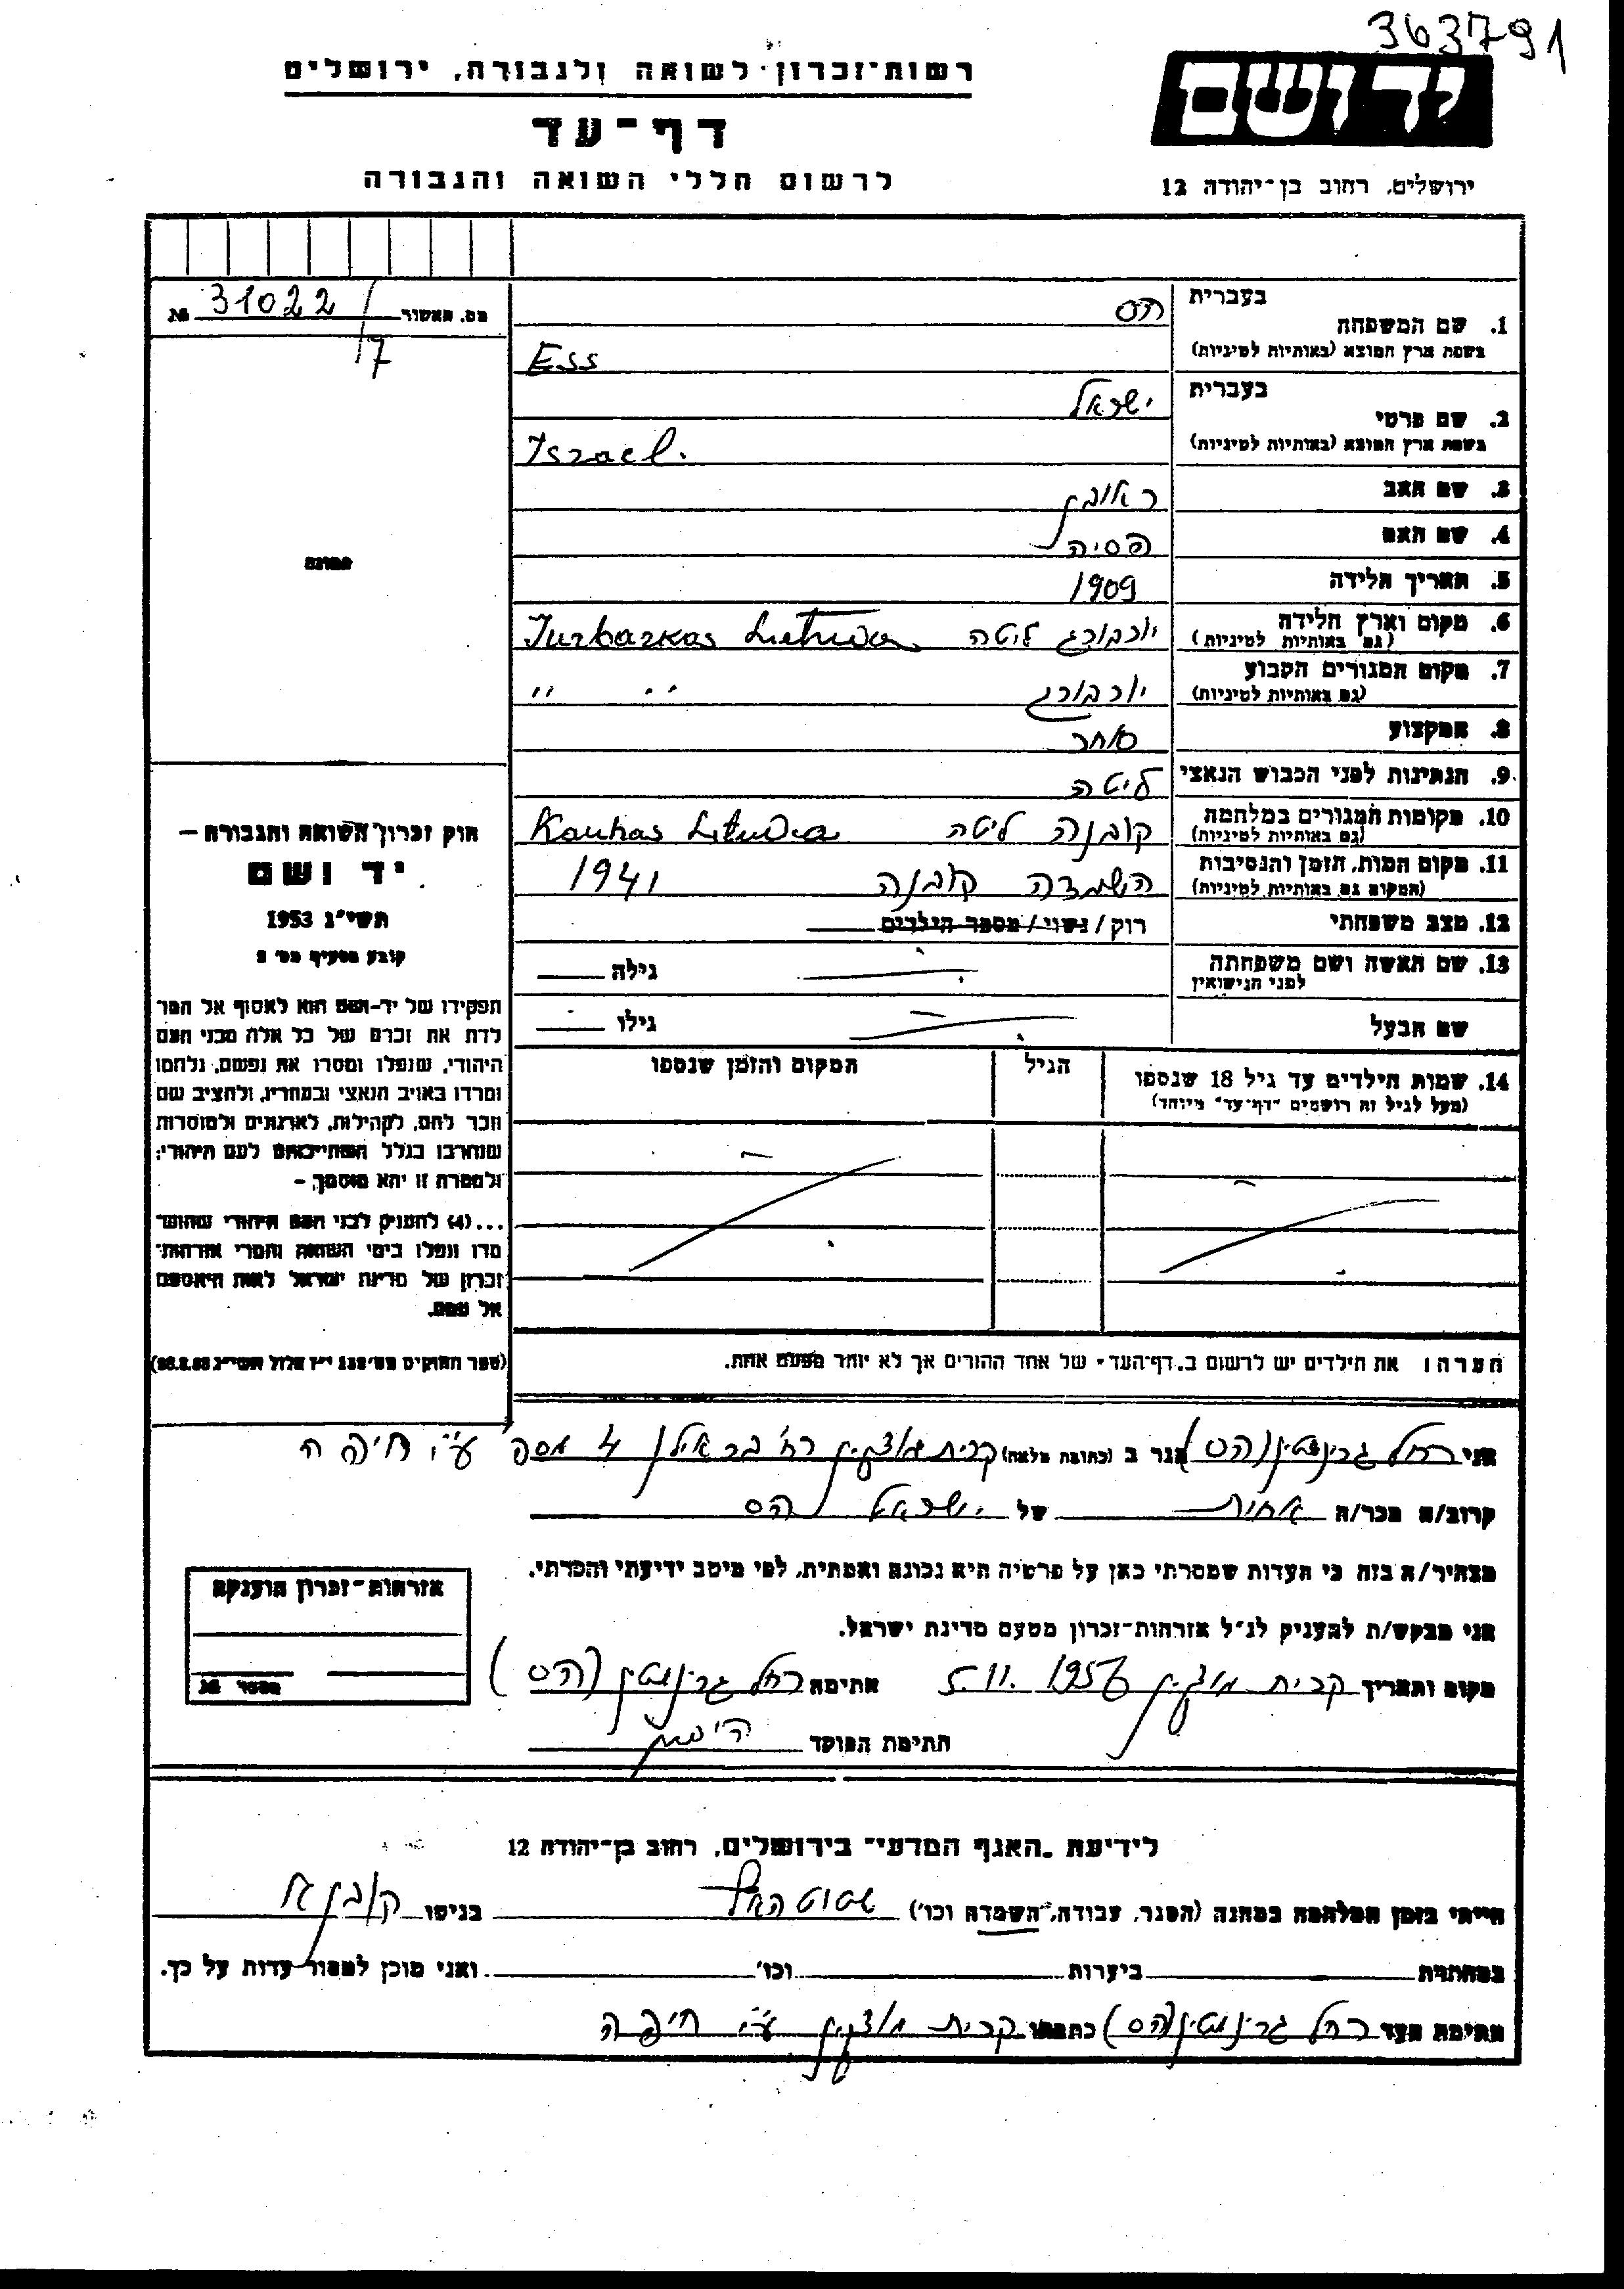 363791
רשות־זכרון לשואה ולגבורה, ירושלים
יד ושם
דף־עד
לרשום חללי השואה והגבורה
ירושלים, רחוב בן־יהודה 12
מס. האשור 31022/17 №
1. שם המשפחה בעברית הס
בשפת ארץ המוצא (באותיות לטיניות) Ess
2. שם פרטי בעברית ישראל
בשפת ארץ המוצא (באותיות לטיניות) Israel.
3. שם האב ראובן
4. שם האם הסיה
5. תאריך הלידה 1909
6. מקום וארץ הלידה יורבורג ליטה Jurbarkas Lietuva
(גם באותיות לטיניות)
7. מקום המגורים הקבוע יורבורג " "
(גם באותיות לטיניות)
8. המקצוע סוחר
9. הנתינות לפני הכבוש הנאצי ליטה
10. מקומות המגורים במלחמה קובנה ליטה Kaunas Lituvia
(גם באותיות לטיניות)
11. מקום המות, הזמן והנסיבות השמדה קובנה 1941
(המקום גם באותיות לטיניות)
12. מצב משפחתי רוק/נשוי/מספר הילדים
13. שם האשה ושם משפחתה גילה
לפני הנישואין
שם הבעל גילו
14. שמות הילדים עד גיל 18 שנספו הגיל המקום והזמן שנספו
(מעל לגיל זה רושמים "דף־עד" מיוחד)
תמונה
חוק זכרון השואה והגבורה —
יד ושם
תשי"ג 1953
קובע בסעיף מס' 2
תפקידו של יד-ושם הוא לאסוף אל המו
לדת את זכרם של כל אלה מבני העם
היהודי, שנפלו ומסרו את נפשם, נלחמו
ומרדו באויב הנאצי ובעוזריו, ולהציב שם
וזכר להם, לקהילות, לארגונים ולמוסדות
שנחרבו בגלל השתייכותם לעם היהודי;
ולמטרה זו יהא מוסמך, —
...(4) להעניק לבני העם היהודי שהוש־
מדו ונפלו בימי השואה והמרי אזרחות־
זכרון של מדינת ישראל לאות היאספם
אל עמם.
(ספר החוקים מס' 132 י"ז אלול תשי"ג 28.8.53)
הערה: את הילדים יש לרשום ב„דף־העד" של אחד ההורים אך לא יותר מפעם אחת.
אני רחל גרינשטיין (הס) הגר ב (כתובת מלאה) קרית מוצקין רח' בר אילן 4 ע"י חיפה
קרוב/ה מכר/ה אחות של ישראל הס
מצהיר/ה בזה כי העדות שמסרתי כאן על פרטיה היא נכונה ואמתית, לפי מיטב ידיעתי והכרתי.
אני מבקש/ת להעניק לנ"ל אזרחות־זכרון מטעם מדינת ישראל.
מקום ותאריך קרית מוצקין 5.11.1956 חתימה רחל גרינשטיין (הס)
חתימת הפוקד
אזרחות־זכרון הוענקה
מספר №
לידיעת „האגף המדעי" בירושלים, רחוב בן־יהודה 12
הייתי בזמן המלחמה במחנה (הסגר, עבודה, השמדה וכו') שטוטהאף בגיטו קובנא
במחתרת ביערות וכו' ואני מוכן למסור עדות על כך.
חתימת העד רחל גרינשטיין (הס) כתבתו קרית מוצקין ע"י חיפה